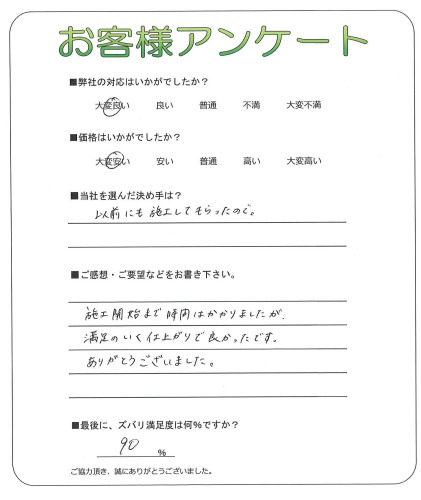 お客様アンケート
■弊社の対応はいかがでしたか？
大変良い 良い 普通 不満 大変不満
■価格はいかがでしたか？
大変安い 安い 普通 高い 大変高い
■当社を選んだ決め手は？
以前にも施工してもらったので。
■ご感想・ご要望などをお書き下さい。
施工開始まで時間はかかりましたが、
満足のいく仕上がりで良かったです。
ありがとうございました。
■最後に、ズバリ満足度は何％ですか？
90 ％
ご協力頂き、誠にありがとうございました。